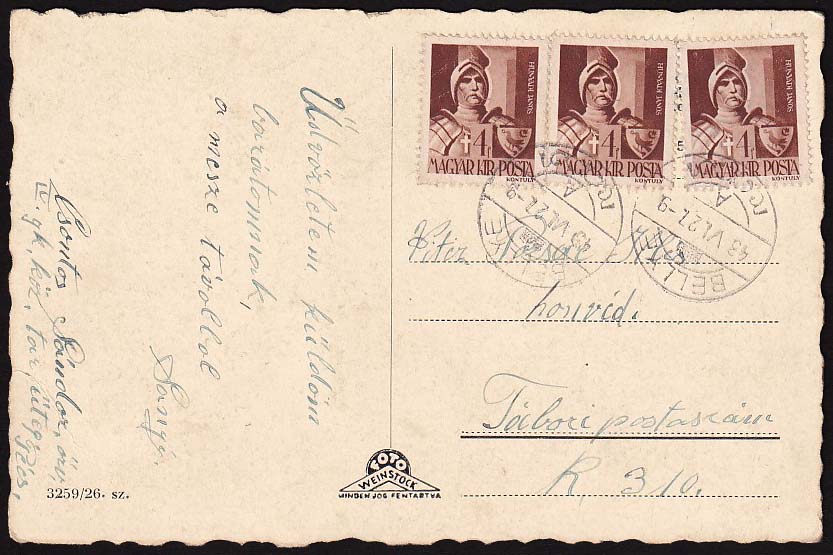 Üdvözletem küldöm
barátomnak,
a mesze távolbol
Sanyi.
Csontos Sándor, őrv,
IV. gk. köz. tar, üteg,
3259/26. sz.
HUNYADI JÁNOS
4f
MAGYAR KIR. POSTA
KONTULY
HUNYADI JÁNOS
4f
MAGYAR KIR. POSTA
KONTULY
HUNYADI JÁNOS
4f
MAGYAR KIR. POSTA
KONTULY
BELLYE
43 VI. 27. -9
BELLYE
43 VI. 27. -9
Vitéz
honvéd.
Tábori postaszám
R 310.
FOTO
WEINSTOCK
MINDEN JOG FENTARTVA